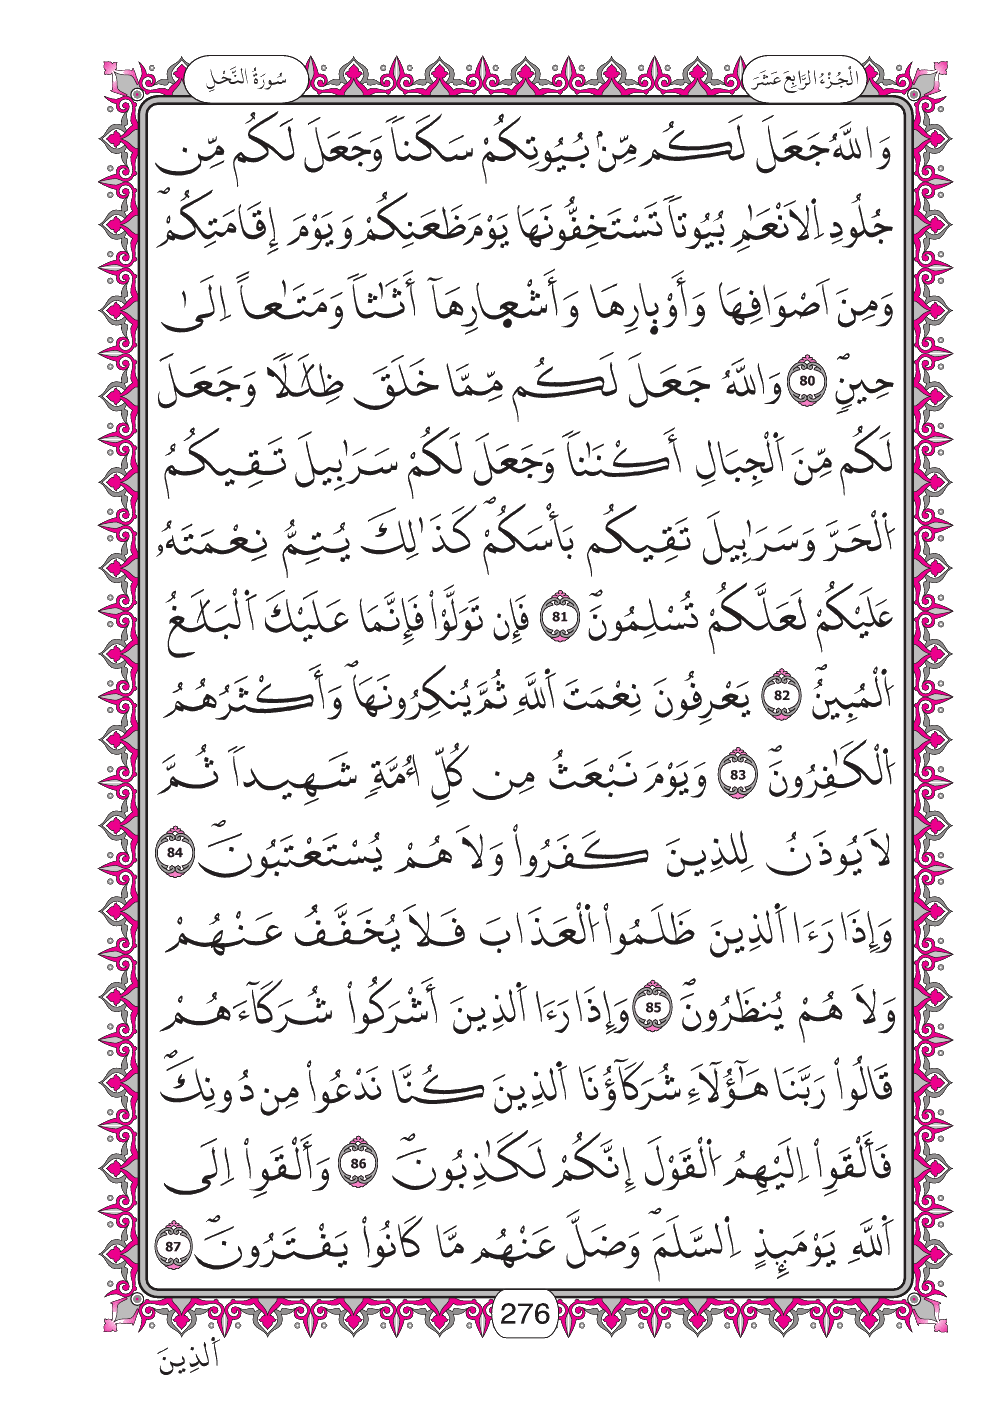 سُورَةُ النَّحْلِ
الْجُزْءُ الرَّابِعَ عَشَرَ
وَاللَّهُ جَعَلَ لَكُم مِّنۢ بُيُوتِكُمْ سَكَناٗ وَجَعَلَ لَكُم مِّن
جُلُودِ اِ۬لَانْعَٰمِ بُيُوتاٗ تَسْتَخِفُّونَهَا يَوْمَ ظَعَنِكُمْ وَيَوْمَ إِقَامَتِكُمْۖ
وَمِنَ اَصْوَافِهَا وَأَوْبِارِهَا وَأَشْعِارِهَآ أَثَٰثاٗ وَمَتَٰعاً اِلَىٰ
حِينٖۖ 80 وَاللَّهُ جَعَلَ لَكُم مِّمَّا خَلَقَ ظِلَٰلاٗ وَجَعَلَ
لَكُم مِّنَ اَ۬لْجِبَالِ أَكْنَٰناٗ وَجَعَلَ لَكُمْ سَرَٰبِيلَ تَقِيكُمُ
اُ۬لْحَرَّ وَسَرَٰبِيلَ تَقِيكُم بَأْسَكُمْۖ كَذَٰلِكَ يُتِمُّ نِعْمَتَهُۥ
عَلَيْكُمْ لَعَلَّكُمْ تُسْلِمُونَۖ 81 فَإِن تَوَلَّوْاْ فَإِنَّمَا عَلَيْكَ اَ۬لْبَلَٰغُ
اُ۬لْمُبِينُۖ 82 يَعْرِفُونَ نِعْمَتَ اَ۬للَّهِ ثُمَّ يُنكِرُونَهَاۖ وَأَكْثَرُهُمُ
اُ۬لْكَٰفِرُونَۖ 83 وَيَوْمَ نَبْعَثُ مِن كُلِّ أُمَّةٖ شَهِيداٗ ثُمَّ
لَا يُوذَنُ لِلذِينَ كَفَرُواْ وَلَا هُمْ يُسْتَعْتَبُونَۖ 84
وَإِذَا رَءَا اَ۬لذِينَ ظَلَمُواْ اُ۬لْعَذَابَ فَلَا يُخَفَّفُ عَنْهُمْ
وَلَا هُمْ يُنظَرُونَۖ 85 وَإِذَا رَءَا اَ۬لذِينَ أَشْرَكُواْ شُرَكَآءَهُمْ
قَالُواْ رَبَّنَا هَٰٓؤُلَآءِ شُرَكَآؤُنَا اَ۬لذِينَ كُنَّا نَدْعُواْ مِن دُونِكَۖ
فَأَلْقَوِاْ اِلَيْهِمُ اُ۬لْقَوْلَ إِنَّكُمْ لَكَٰذِبُونَۖ 86 وَأَلْقَوِاْ اِلَى
اَ۬للَّهِ يَوْمَئِذٍ اِ۬لسَّلَمَۖ وَضَلَّ عَنْهُم مَّا كَانُواْ يَفْتَرُونَۖ 87
276
اَ۬لذِينَ